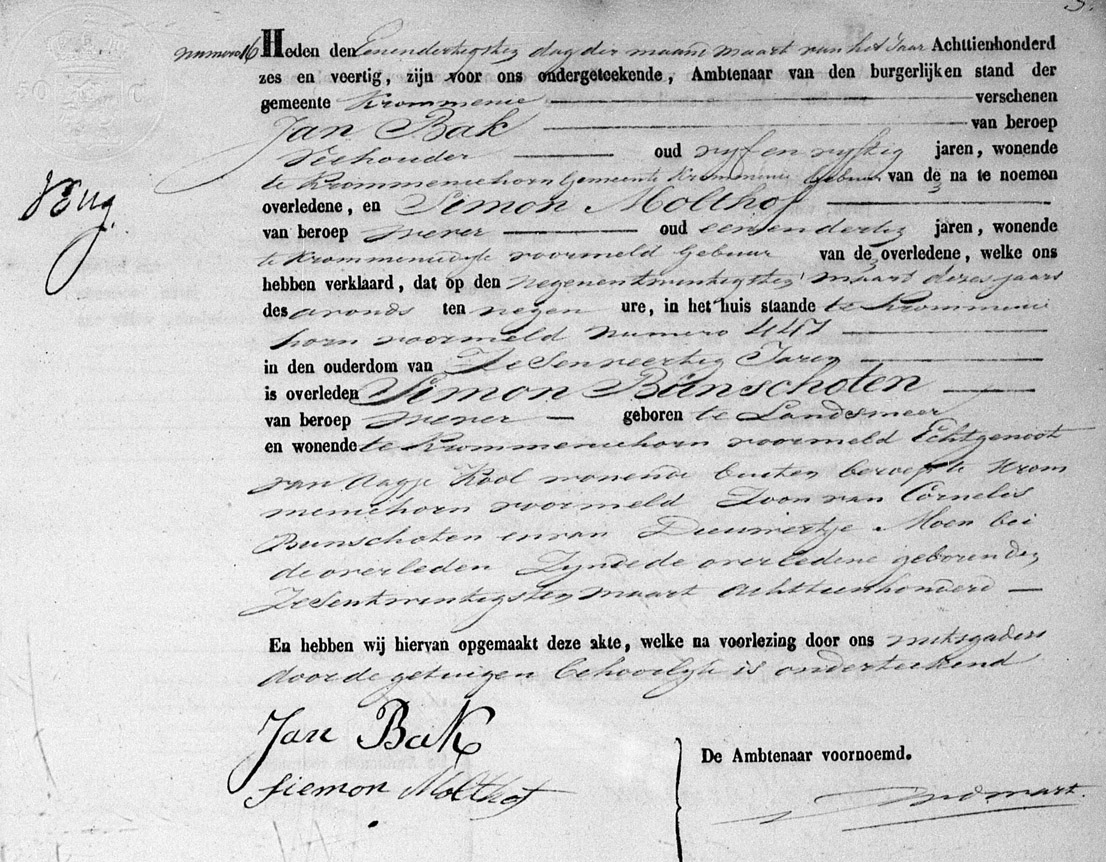 numero 16 Heden den Eenendertigsten dag der maand maart van het Jaar Achttienhonderd
zes en veertig, zijn voor ons ondergeteekende, Ambtenaar van den burgerlijken stand der
gemeente Krommenie verschenen
Jan Bak van beroep
Veehouder oud vyf en vyftig jaren, wonende
te Krommeniehorn Gemeente Krommenie gebuur van de na te noemen
overledene, en Simon Molthof
van beroep wever oud eenendertig jaren, wonende
te Krommeniedyk voormeld Gebuur van de overledene, welke ons
hebben verklaard, dat op den negenentwintigsten maart dezes jaars
des avonds ten negen ure, in het huis staande te Krommenie
horn voormeld numero 447
in den ouderdom van Zesenveertig Jaren
is overleden Simon Bunschoten
van beroep wever geboren te Landsmeer
en wonende te Krommeniehorn voormeld Echtgenoot
van Aagje Kool wonende buiten beroep te Krom
meniehorn voormeld Zoon van Cornelis
Bunschoten en van Dieuwertje Moen bei
de overleden Zynde de overledene geboren den
Zesentwintigsten maart Achttienhonderd
En hebben wij hiervan opgemaakt deze akte, welke na voorlezing door ons mitsgaders
door de getuigen behoorlyk is onderteekend
Jan Bak
De Ambtenaar voornoemd.
Siemon Molthof